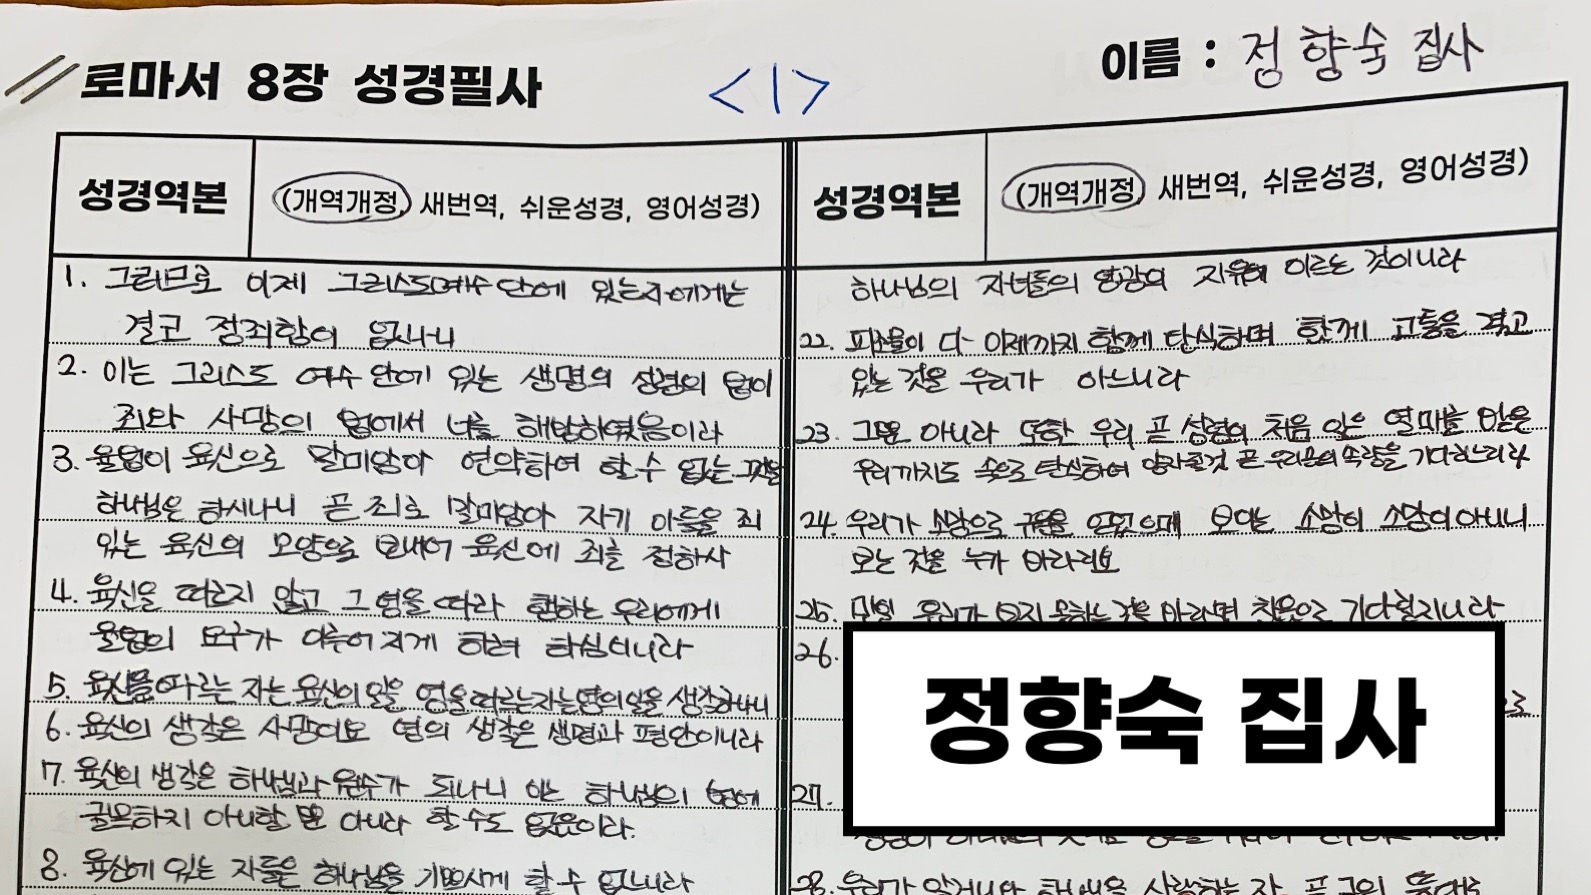 로마서 8장 성경필사
<1>
이름 : 정향숙 집사
성경역본
(개역개정, 새번역, 쉬운성경, 영어성경)
1. 그러므로 이제 그리스도예수 안에 있는자에게는
결코 정죄함이 없나니
2. 이는 그리스도 예수 안에 있는 생명의 성령의 법이
죄와 사망의 법에서 너를 해방하였음이라
3. 율법이 육신으로 말미암아 연약하여 할 수 없는 그것을
하나님은 하시나니 곧 죄로 말미암아 자기 아들을 죄
있는 육신의 모양으로 보내어 육신에 죄를 정하사
4. 육신을 따르지 않고 그 영을 따라 행하는 우리에게
율법의 요구가 이루어지게 하려 하심이니라
5. 육신을 따르는 자는 육신의 일을 영을 따르는자는 영의일을 생각하나니
6. 육신의 생각은 사망이요 영의 생각은 생명과 평안이니라
7. 육신의 생각은 하나님과 원수가 되나니 이는 하나님의 법에
굴복하지 아니할 뿐 아니라 할 수도 없음이라.
8. 육신에 있는 자들은 하나님을 기쁘시게 할 수 없느니라
성경역본
(개역개정, 새번역, 쉬운성경, 영어성경)
하나님의 자녀들의 영광의 자유에 이르는 것이니라
22. 피조물이 다 이제까지 함께 탄식하며 함께 고통을 겪고
있는 것을 우리가 아느니라
23. 그뿐 아니라 또한 우리 곧 성령의 처음 익은 열매를 받은
우리까지도 속으로 탄식하여 양자될것 곧 우리몸의 속량을 기다리느니라
24. 우리가 소망으로 구원을 얻었으매 보이는 소망이 소망이 아니니
보는 것을 누가 바라리요
25. 만일 우리가 보지 못하는 것을 바라면 참음으로 기다릴지니라
26.
으로
27.
28. 우리가 알거니와 하나님을 사랑하는 자 곧 그의 뜻대로
정향숙 집사